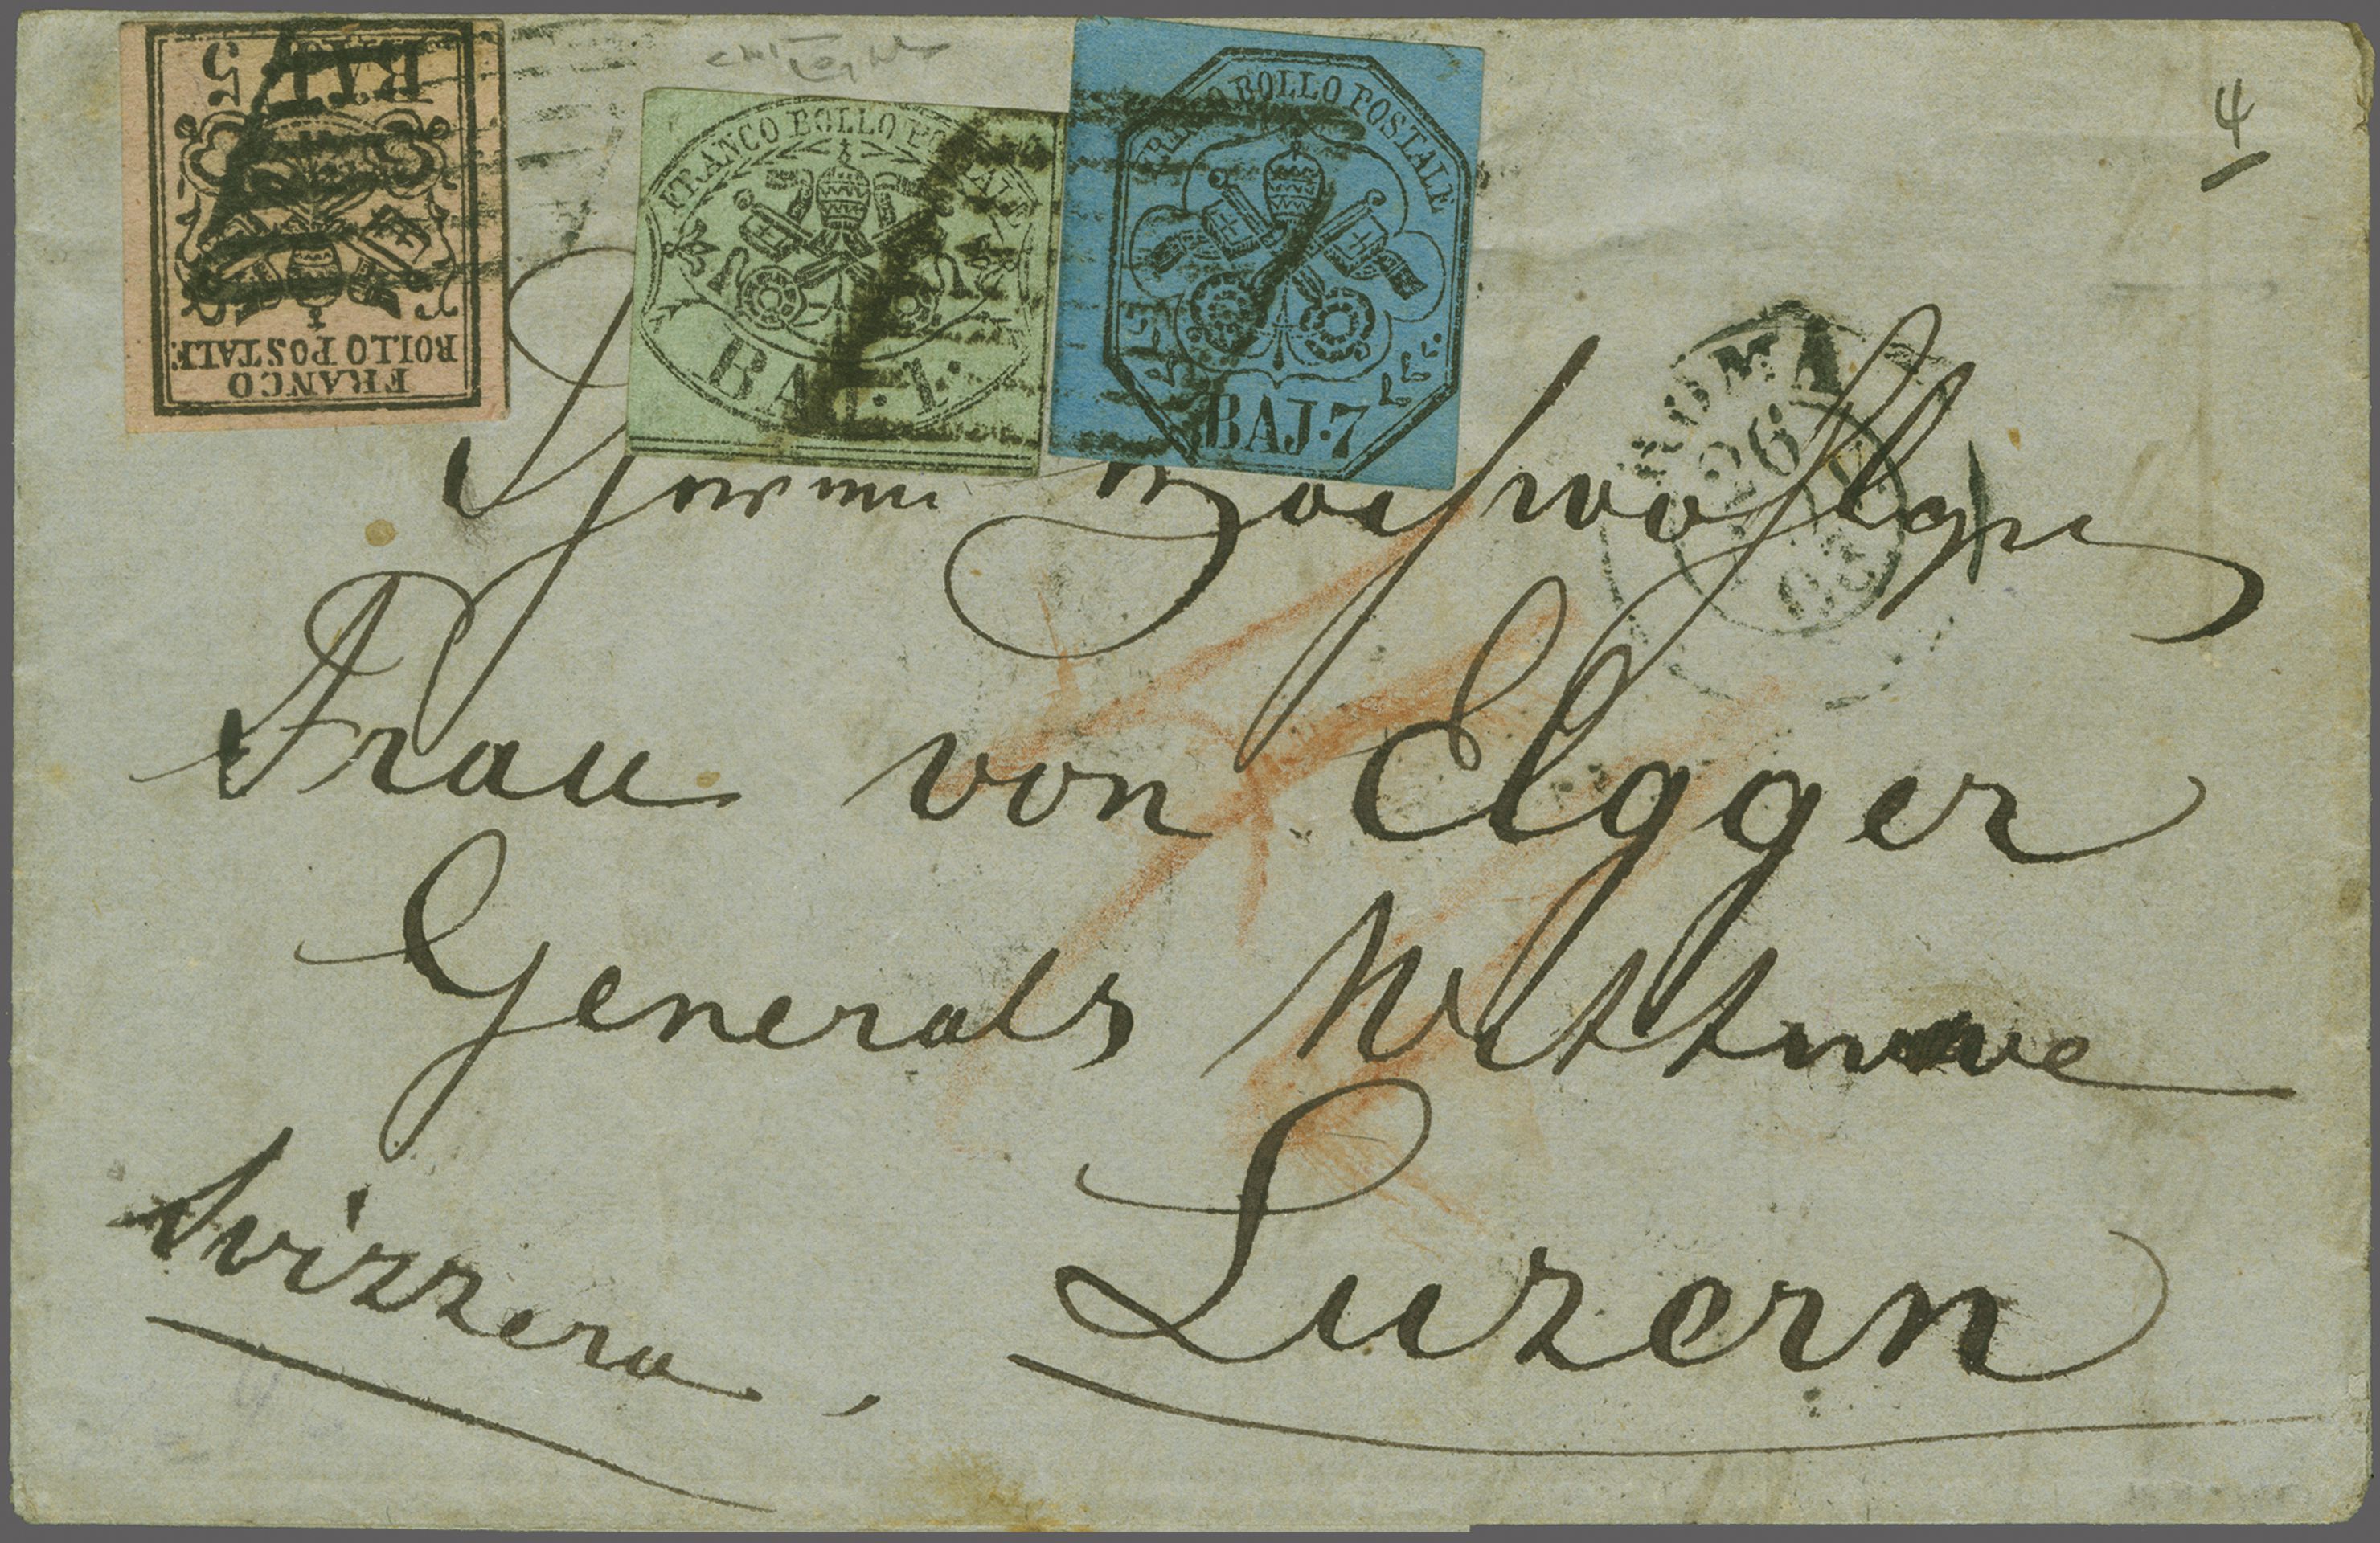 BAJ 5
FRANCO
BOLLO POSTALE
FRANCO BOLLO POSTALE
BAJ. 1.
FRANCO BOLLO POSTALE
BAJ. 7
4
ROMA
26
63
Frau von Elgger
Generals Wittwe
Svizzera, Luzern